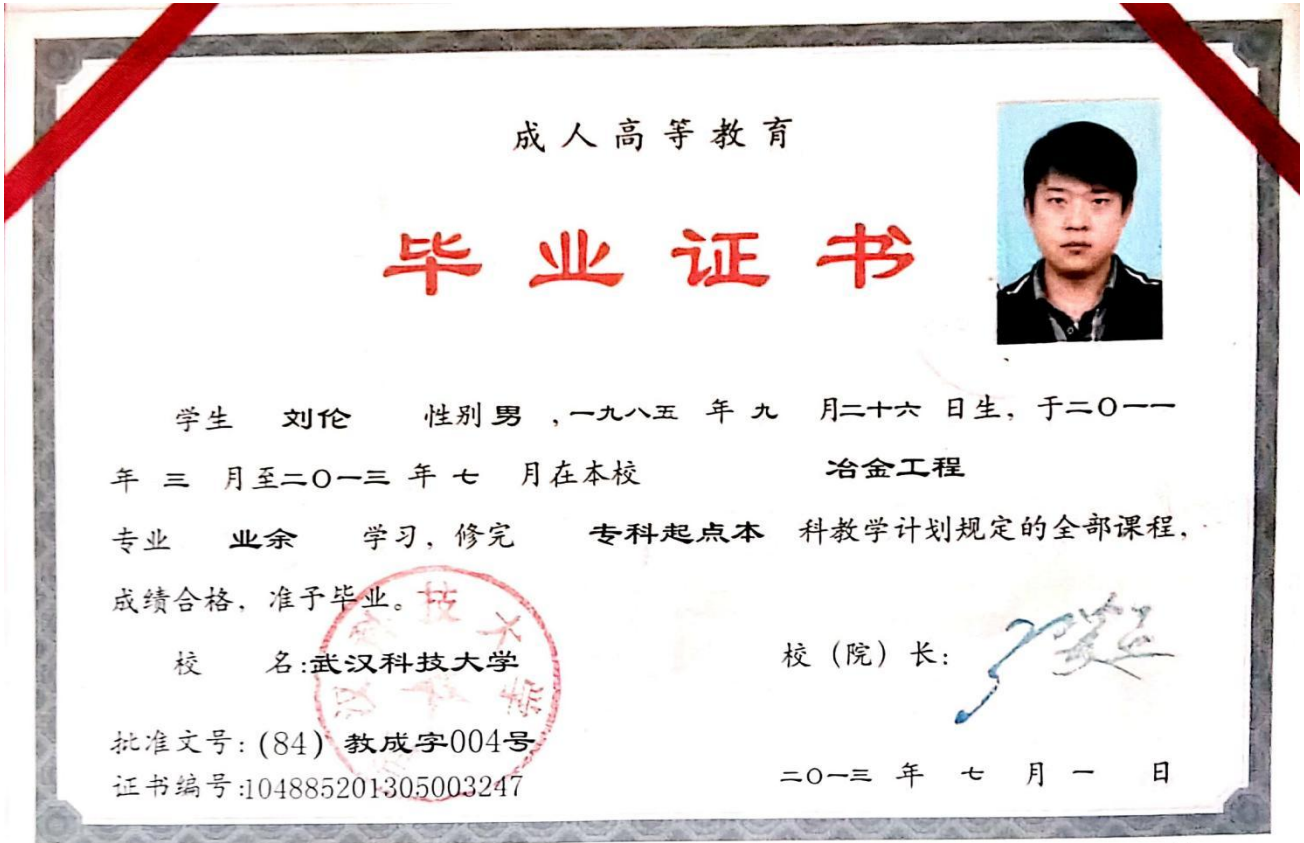 成人高等教育
毕业证书
学生 刘伦 性别 男 ,一九八五 年 九 月二十六 日生，于二O一一
年 三 月至二O一三 年 七 月在本校 冶金工程
专业 业余 学习，修完 专科起点本 科教学计划规定的全部课程，
成绩合格，准予毕业。
校 名:武汉科技大学
校（院）长：
批准文号：(84) 教成字004号
证书编号:104885201305003247
二O一三 年 七 月 一 日